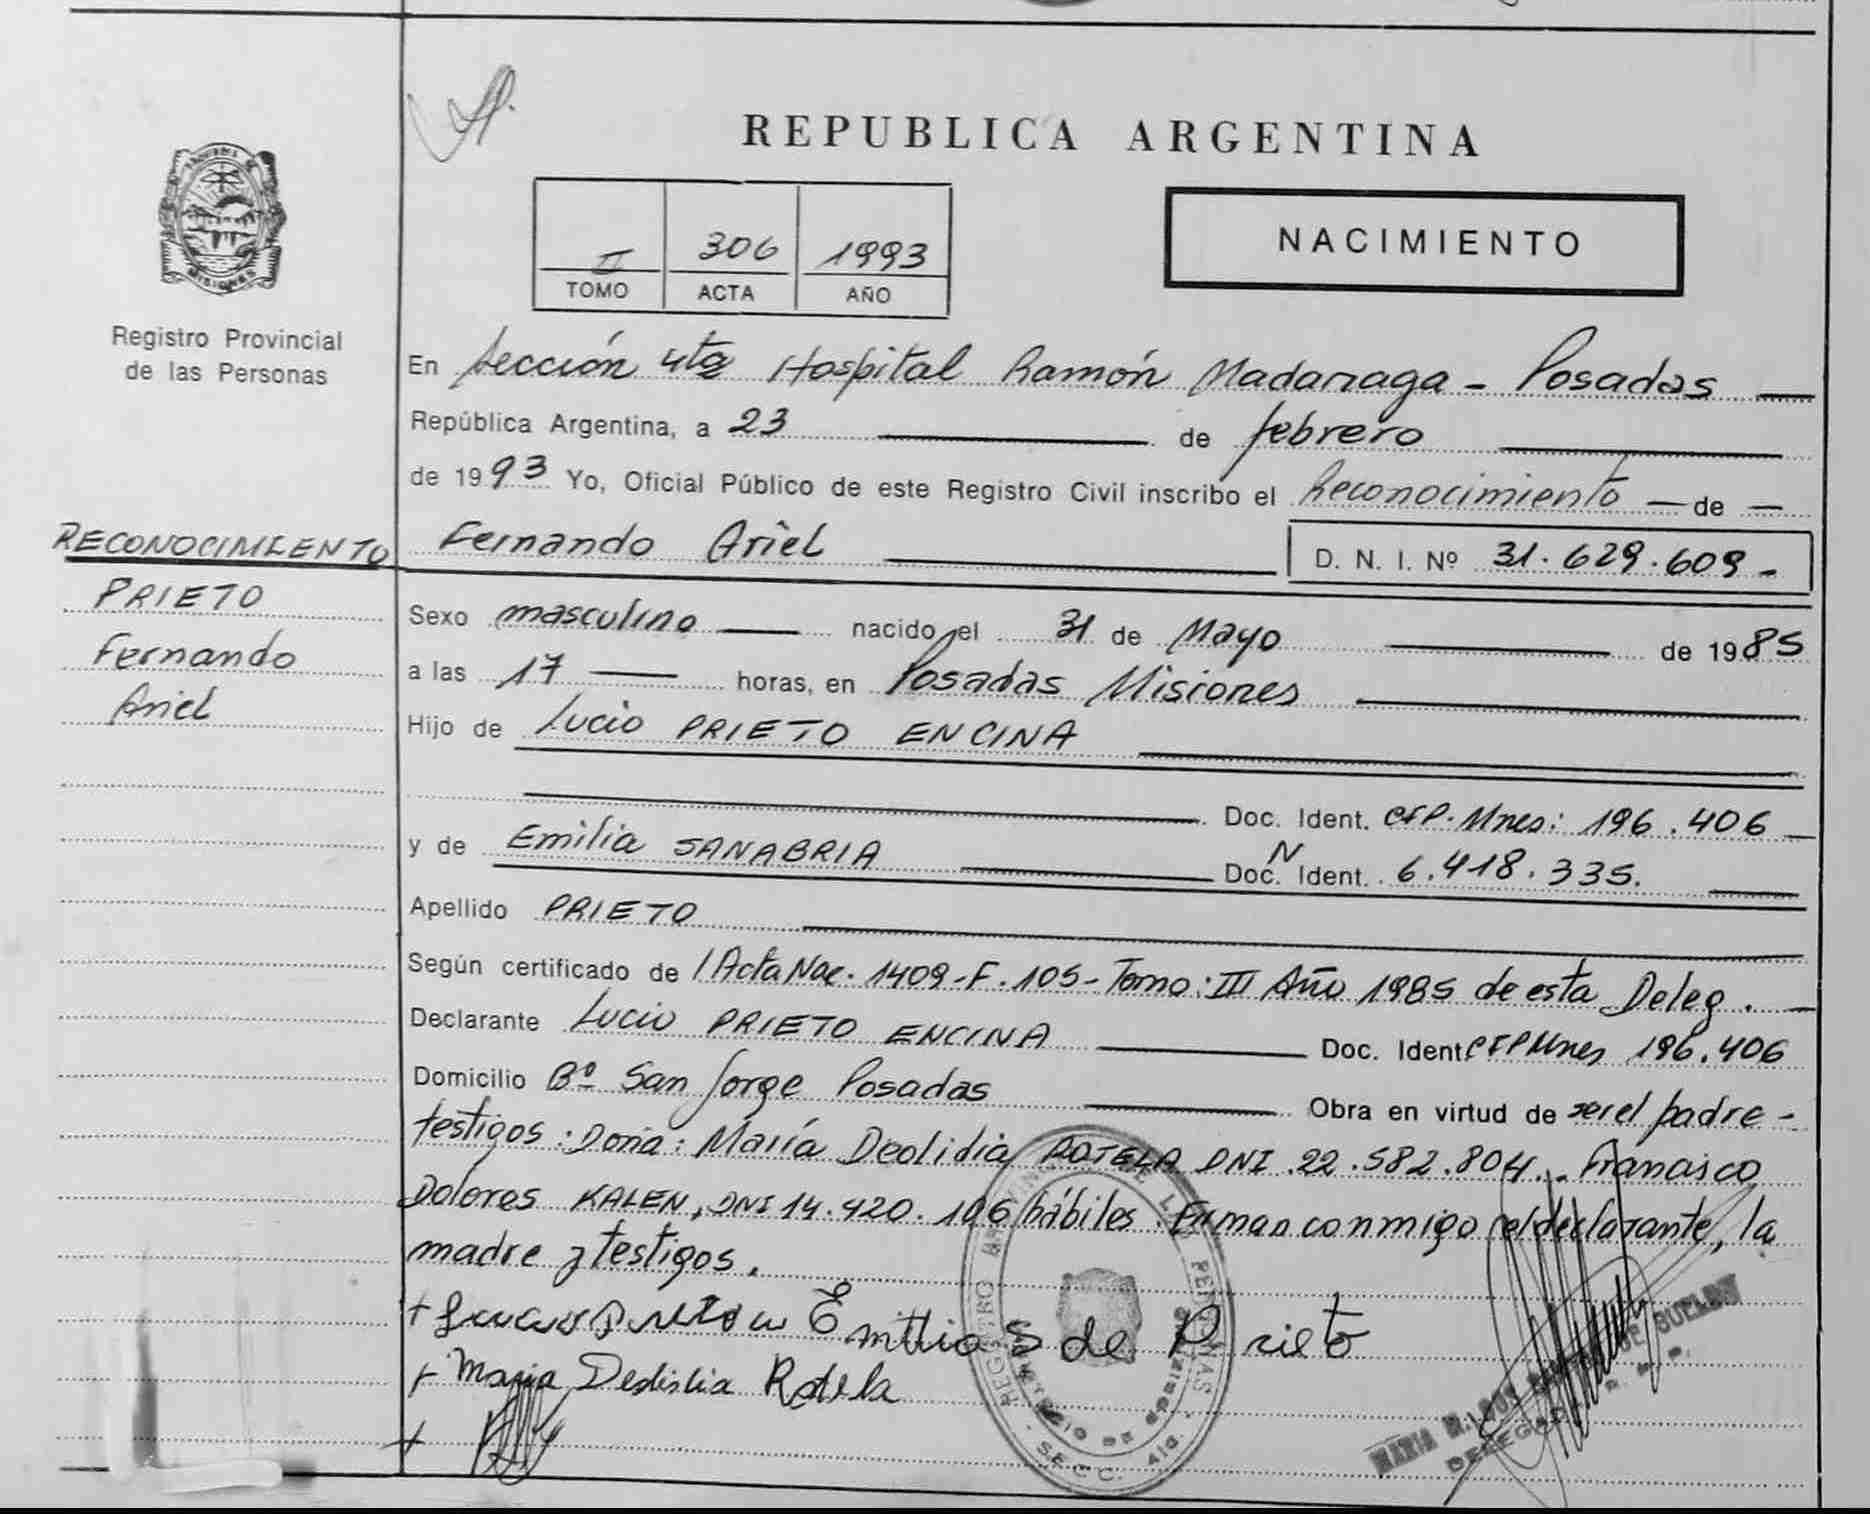 REPUBLICA ARGENTINA
II 306 1993
TOMO ACTA AÑO
NACIMIENTO
MISIONES
Registro Provincial
de las Personas
En Sección 4ta Hospital Ramón Madariaga - Posadas
República Argentina, a 23 de febrero
de 1993 Yo, Oficial Público de este Registro Civil inscribo el Reconocimiento — de —
Fernando Ariel D. N. I. Nº 31.629.609-
RECONOCIMIENTO
PRIETO
Fernando
Ariel
Sexo masculino nacido el 31 de Mayo de 1985
a las 17 horas, en Posadas Misiones
Hijo de Lucio PRIETO ENCINA
Doc. Ident. CIP. Mnes: 196.406
y de Emilia SANABRIA Doc. N Ident. 6.418.335.
Apellido PRIETO
Según certificado de Acta Nac. 1409-F.105-Tomo: III Año 1985 de esta Deleg.
Declarante Lucio PRIETO ENCINA Doc. Ident CIP Mnes 196.406
Domicilio Bº San Jorge Posadas Obra en virtud de ser el padre-
testigos: Doña: María Deolidia ROTELA DNI 22.582.804. Francisco
Dolores KALEN, DNI 14.420.106 hábiles. Firman conmigo el declarante, la
madre y testigos.
+ Emilia S de Prieto
+ Maria Rotela
+
REGISTRO DE LAS PERSONAS
SECC. 4ta.
MARIA DE